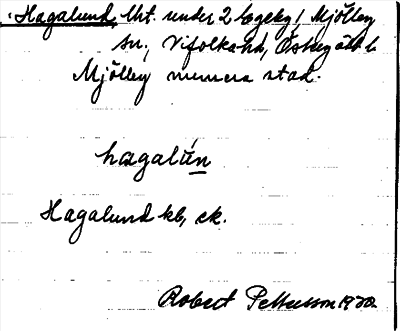 Hagalund, lht. under 2 Lagebg, Mjölby
sn, Vifolka hd, Östergötl.
Mjölby numera stad.
hagalún
Hagalund kb, ek.
Robert Pettersson 1930